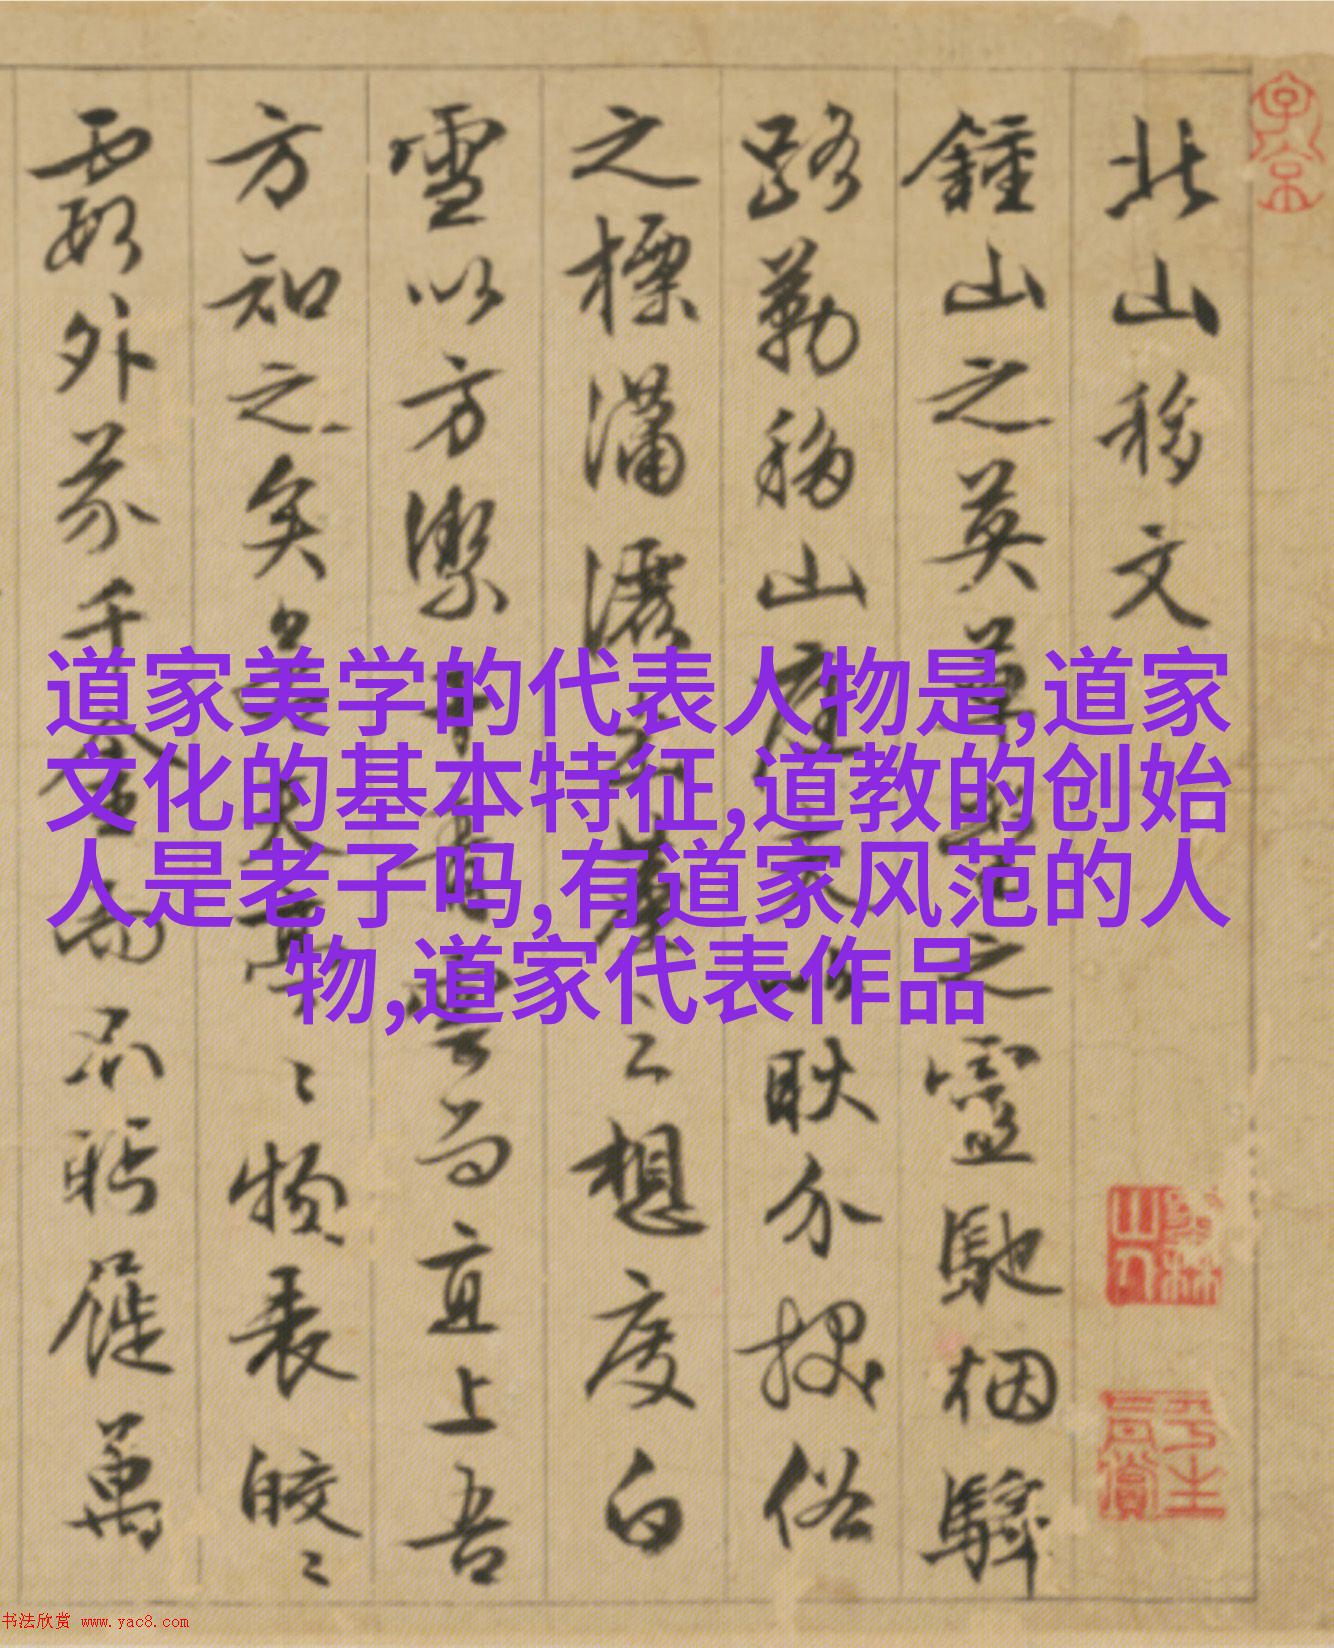 道家美学的代表人物是,道家
文化的基本特征,道教的创始
人是老子吗,有道家风范的人
物,道家代表作品
北山移文
鍾山之英草堂之靈馳烟驛
路勒移山庭夫以耿介拔俗
之標瀟灑出塵之想度白
雪以方潔干青雲而直上吾
方知之矣若其亭亭物表皎皎
霞外芥千金而不眄屣萬
书法欣赏 www.yac8.com